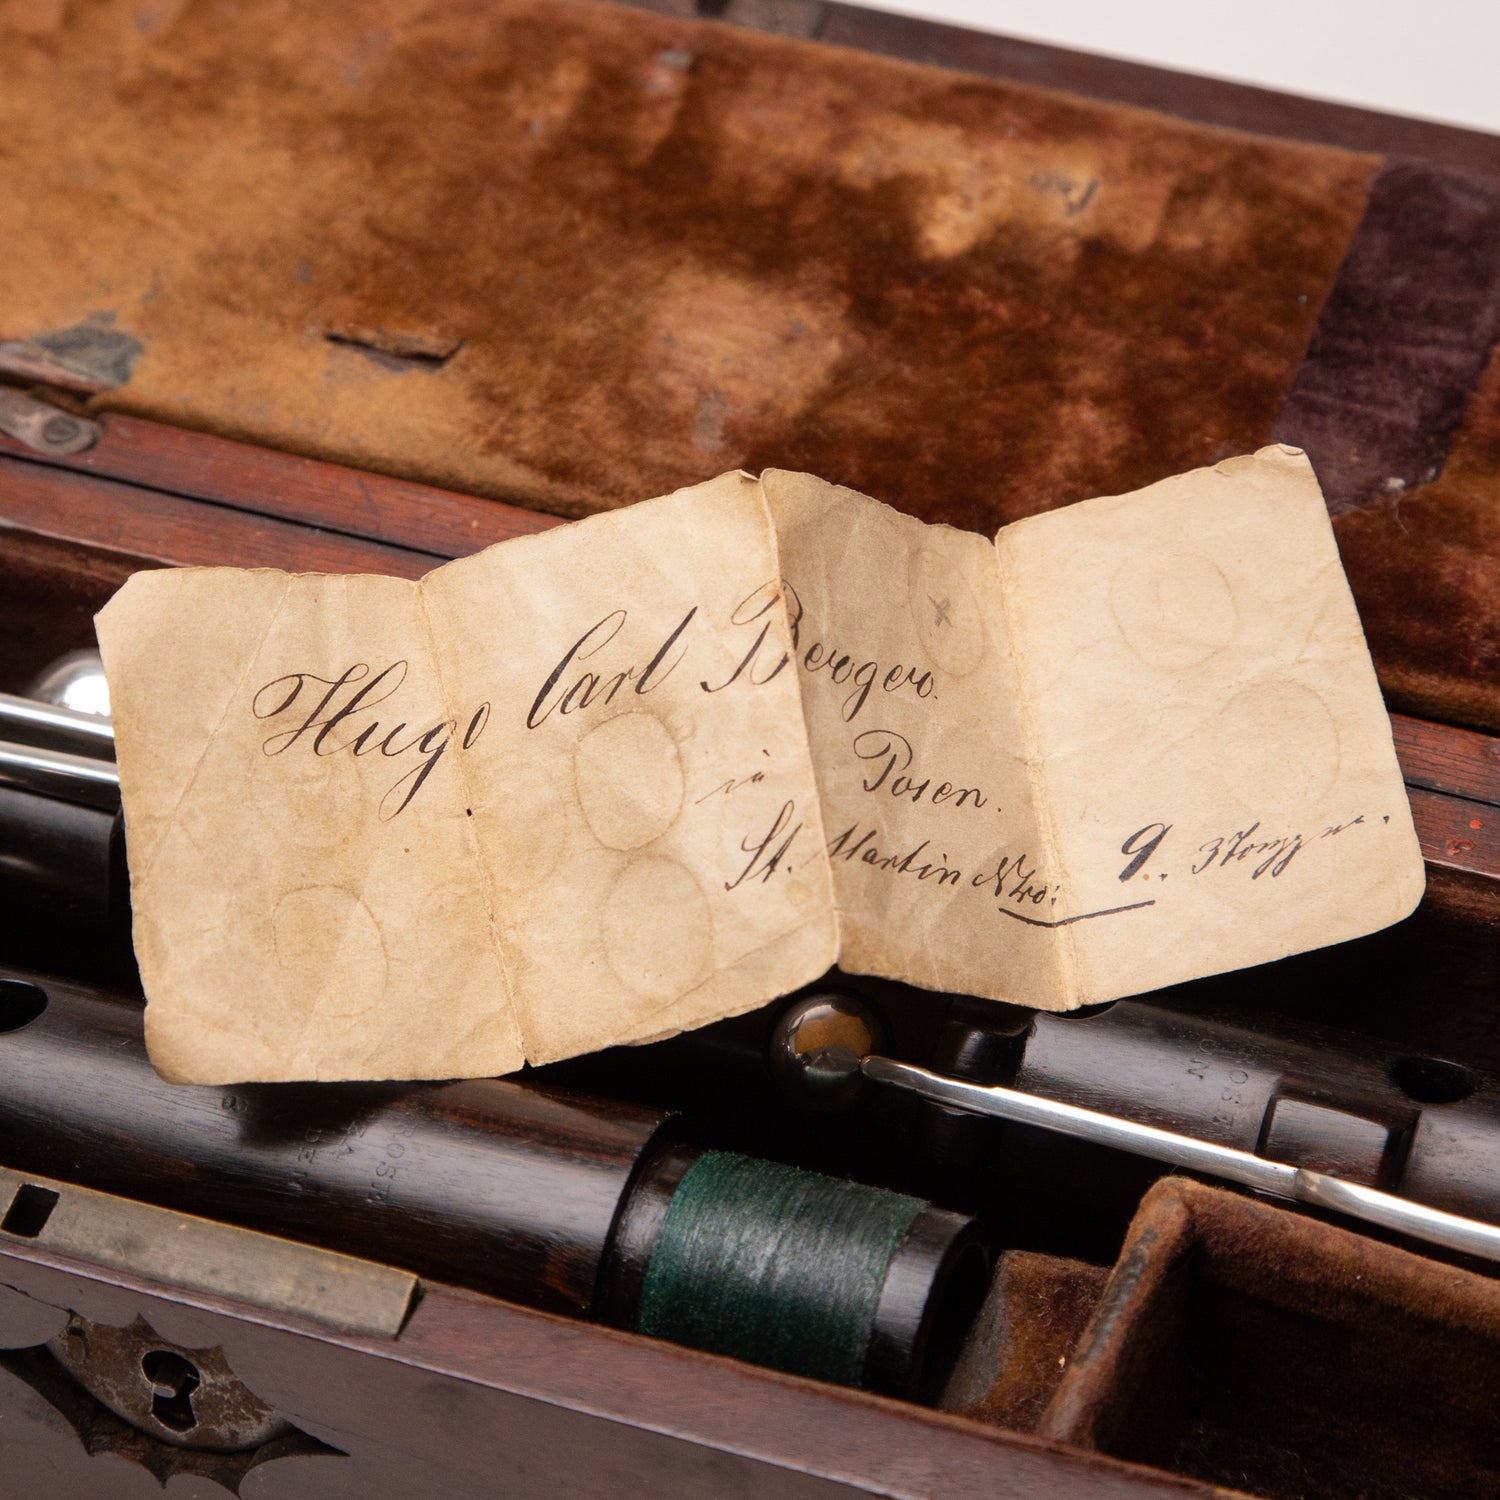 Hugo Carl Berger.
in Posen.
St. Martin Nro: 9.